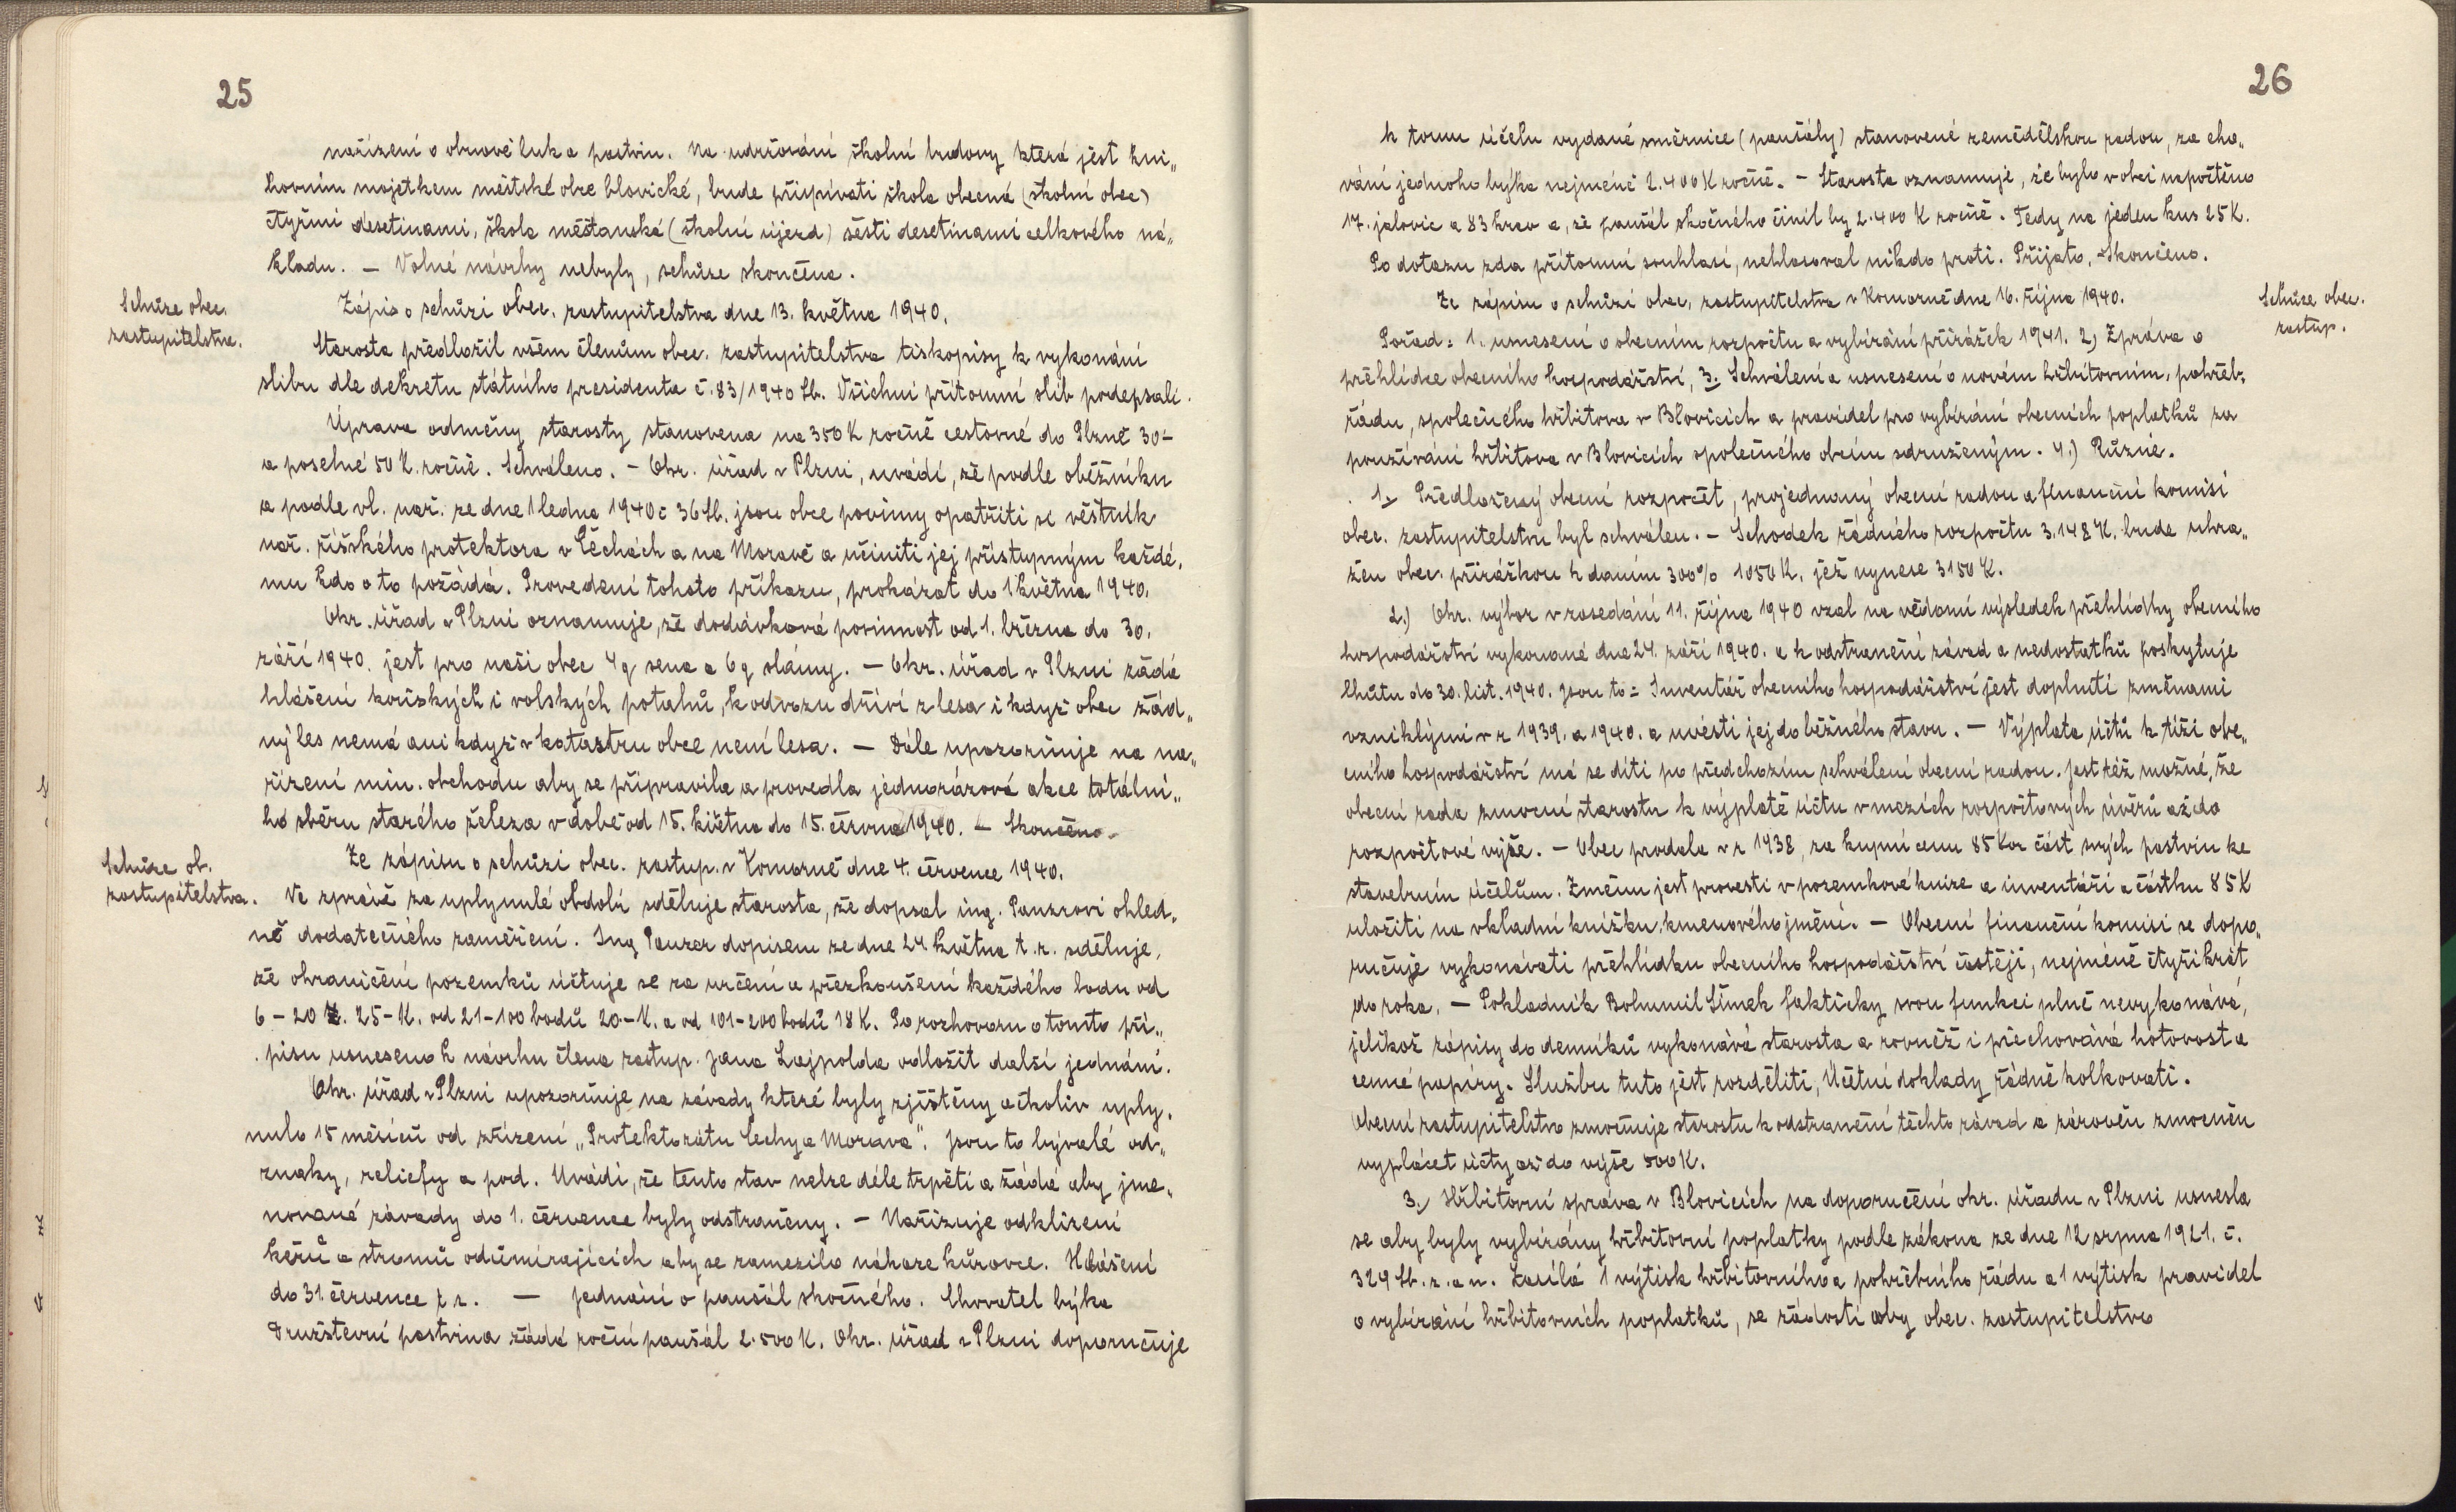 25
nařízení o obnově luk a pastvin. Na udržování školní budovy která jest kni„
hovním majetkem městské obce blovické, bude přispívati škola obecná (školní obec)
čtyřmi desetinami, škola měšťanská (školní újezd) šesti desetinami celkového ná„
kladu. — Volné návrhy nebyly, schůze skončena.
Schůze obec.
zastupitelstva.
Zápis o schůzi obec. zastupitelstva dne 13. května 1940.
Starosta předložil všem členům obec. zastupitelstva tiskopisy k vykonání
slibu dle dekretu státního presidenta č. 83/1940 Sb. Všichni přítomní slib podepsali.
Úprava odměny starosty stanovena na 350 K ročně cestovné do Plzně 30-
a poselné 50 K. ročně. Schváleno. — Okr. úřad v Plzni, uvádí, že podle oběžníku
a podle vl. nař. ze dne 1 ledna 1940 č 36 Sb. jsou obce povinny opatřiti si věstník
nař. říšského protektora v Čechách a na Moravě a učiniti jej přístupným každé,
mu kdo o to požádá. Provedení tohoto příkazu, prokázat do 1 května 1940.
Okr. úřad v Plzni oznamuje, že dodávková povinnost od 1. března do 30.
září 1940. jest pro naši obec 4 q sena a 6 q slámy. — Okr. úřad v Plzni žádá
hlášení koňských i volských potahů, k odvozu dříví z lesa i když obec žád„
ný les nemá ani když v katastru obce není lesa. — Dále upozorňuje na na„
řízení min. obchodu aby se připravila a provedla jednorázová akce totální„
ho sběru starého železa v době od 15. května do 15. června 1940. — Skončeno.
Schůze ob.
zastupitelstva.
Ze zápisu o schůzi obec. zastup. v Komorně dne 4. července 1940.
Ve zprávě za uplynulé období sděluje starosta, že dopsal ing. Panzrovi ohled„
ně dodatečného zaměření. Ing Panzer dopisem ze dne 24 května t. r. sděluje,
že ohraničení pozemků účtuje se za určení a přezkoušení každého bodu od
6 – 20 . 25-K. od 21-100 bodů 20-K. a od 101-200 bodů 18 K. Po rozhovoru o tomto pří„
pisu usneseno k návrhu člena zastup. Jana Lajpolda odložit další jednání.
Okr. úřad v Plzni upozorňuje na závady které byly zjištěny ačkoliv uply„
nulo 15 měsíců od zřízení „Protektorátu Čechy a Morava". Jsou to bývalé od„
znaky, reliefy a pod. Uvádí, že tento stav nelze déle trpěti a žádá aby jme„
nované závady do 1. července byly odstraněny. — Nařizuje odklizení
keřů a stromů odumírajících aby se zamezilo nákaze kůrovce. Hlášení
do 31 července t r. — Jednání o paušál skočného. Chovatel býka
Družstevní pastvina žádá roční paušál 2.500 K. Okr. úřad v Plzni doporučuje
26
k tomu účelu vydané směrnice (paušály) stanovené zemědělskou radou, za cho„
vání jednoho býka nejméně 2.400 K ročně. — Starosta oznamuje, že bylo v obci napočteno
17. jalovic a 83 krav a, že paušál skočného činil by 2.400 K ročně. Tedy na jeden kus 25 K.
Po dotazu zda přítomní souhlasí, nehlasoval nikdo proti. Přijato, – Skončeno.
Ze zápisu o schůzi obec. zastupitelstva v Komorně dne 16. října 1940.
Schůze obec.
zastup.
Pořad: 1. usnesení o obecním rozpočtu a vybírání přirážek 1941. 2) Zpráva o
přehlídce obecního hospodářství, 3. Schválení a usnesení o novém hřbitovním, pohřeb.
řádu, společného hřbitova v Blovicích a pravidel pro vybírání obecních poplatků za
používání hřbitova v Blovicích společného obcím sdruženým. 4.) Různé.
1. Předložený obecní rozpočet, projednaný obecní radou a finanční komisí
obec. zastupitelstvu byl schválen. — Schodek řádného rozpočtu 3.148 K. bude uhra„
žen obec. přirážkou k daním 300% 1050 K. jež vynese 3150 K.
2.) Okr. výbor v zasedání 11. října 1940 vzal na vědomí výsledek přehlídky obecního
hospodářství vykonané dne 24. září 1940. a k odstranění závad a nedostatků poskytuje
lhůtu do 30. list. 1940. Jsou to: Inventář obecního hospodářství jest doplniti změnami
vzniklými v r 1939. a 1940. a uvésti jej do běžného stavu. — Výplata účtů k tíži obe„
cního hospodářství má se díti po předchozím schválení obecní radou. Jest též možné, že
obecní rada zmocní starostu k výplatě účtu v mezích rozpočtových úvěrů až do
rozpočtové výše. — Obec prodala v r 1938, za kupní cenu 85 Kor část svých pastvin ke
stavebním účelům. Změnu jest provesti v pozemkové knize a inventáři a částku 85 K
uložiti na vkladní knížku, kmenového jmění. — Obecní finanční komisi se dopo„
ručuje vykonávati přehlídku obecního hospodářství častěji, nejméně čtyřikrát
do roka. — Pokladník Bohumil Šimek fakticky svou funkci plně nevykonává,
jelikož zápisy do denníků vykonává starosta a rovněž i přechovává hotovost a
cenné papíry. Službu tuto jest rozděliti, Účetní doklady řádně kolkovati.
Obecní zastupitelstvo zmocňuje starostu k odstranění těchto závad a zároveň zmocněn
vyplácet účty až do výše 500 K.
3.) Hřbitovní správa v Blovicích na doporučení okr. úřadu v Plzni usnesla
se aby byly vybírány hřbitovní poplatky podle zákona ze dne 12 srpna 1921. č.
329 Sb. z. a n. Zasílá 1 výtisk hřbitovního a pohřebního řádu a 1 výtisk pravidel
o vybírání hřbitovních poplatků, se žádostí aby obec. zastupitelstvo